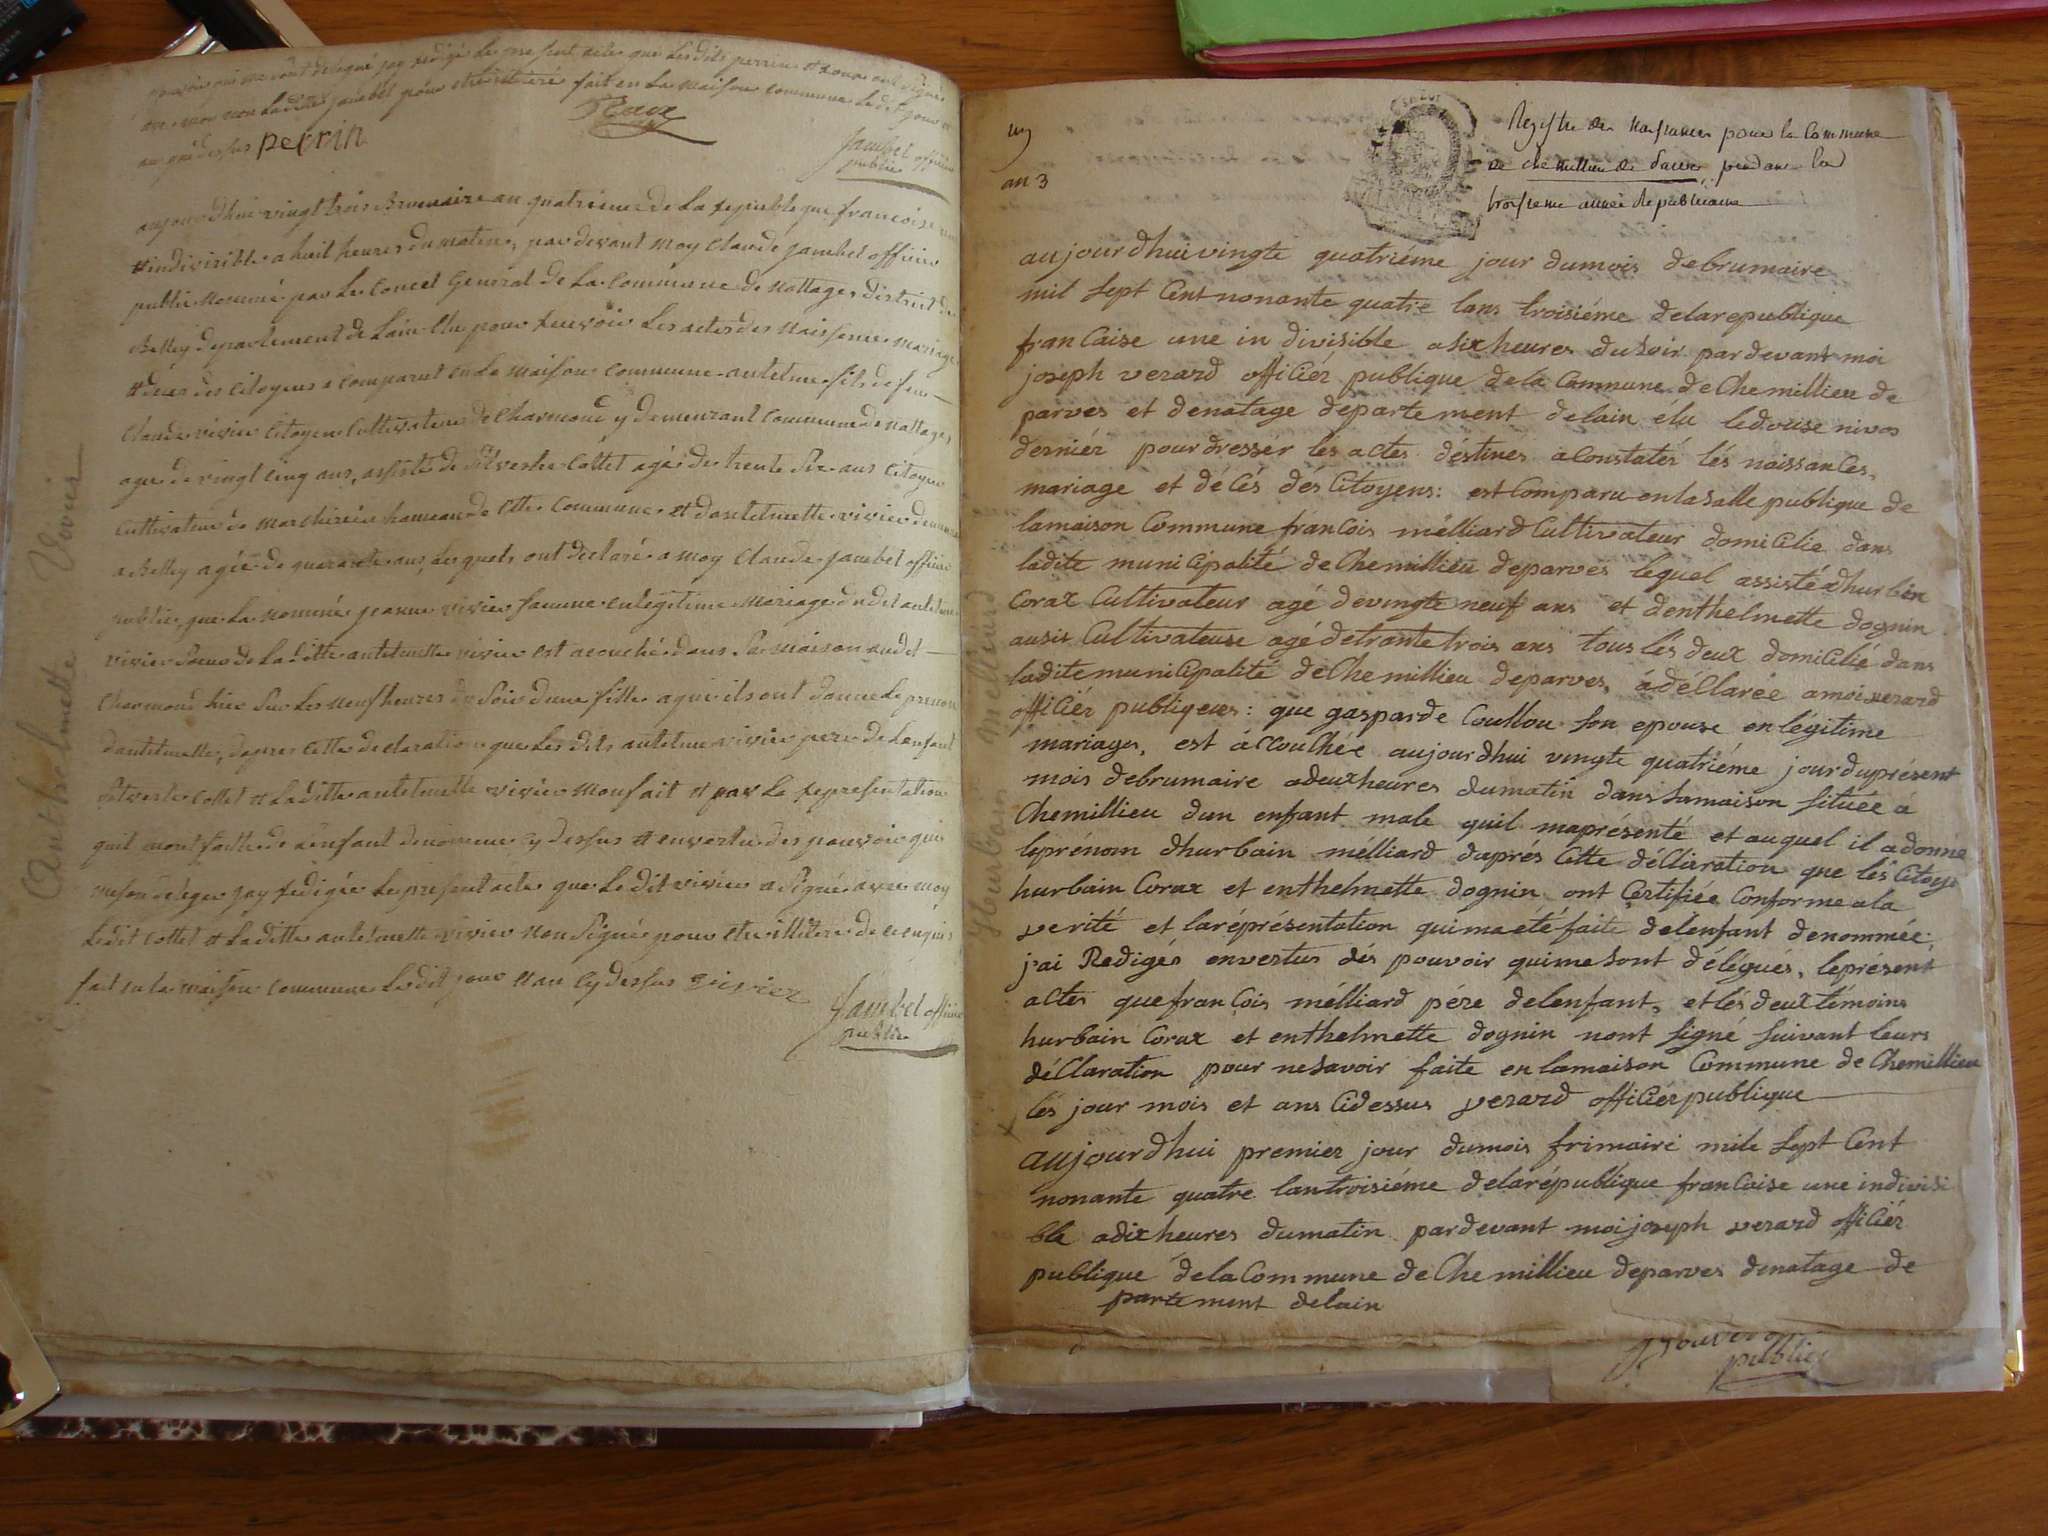 pouvoir qui me sont delegué jay redigé le present acte que lesdits perrin et roux ont signé
avec moy non laditte jambet pour etre illiteré fait en la maison commune ledit jour et
an que dessus perrin
Roux
jambet officier
public
aujourdhui vingt trois Brumaire an quatrieme de la republique francoise une
et indivisible a huit heures du matin, par devant moy Claude jambet officier
public nommé par le Concel General de la Commune de Nattages district de
Belley departement de Lain Elu pour recevoir les actes des Naissence mariage
et deces des citoyens a comparut en la maison commune antelme fils de feu
Claude vivier citoyen Cultivateur de Charmond y demeurant commune de Nattages
age de vingt cinq ans, assisté de Silvestre Collet agé de trente six ans citoyen
cultivateur de hameau de cette Commune et dantelmette vivier
a Belley agée de quarante ans, lesquels ont declaré a moy Claude jambet officier
public, que la nommée jeanne vivier famme en legitime mariage du dit antelme
vivier soeur de laditte antelmette vivier est acouché dans sa maison audet
Charmond hier sur les neuf heures du soir dune fille a qui ils ont donné le prenom
dantelmette, dapres cette declaration que les dits antelme vivier pere de lenfant
Silvestre Collet et laditte antelmette vivier mon fait et par la representation
quil mont faitte de lenfant denommé cy dessus et en vertu des pouvoir qui
me son deleguer jay redigée le present acte que le dit vivier a signé avec moy
ledit Collet et laditte antelmette vivier non signé pour etre illiteré de ce enquis
fait en la maison commune ledit jour et an cy dessus vivier
jambet officier
public
Anthelmette Vivier
an 3
Registre des naissances pour la Commune
de chemillieu de parves pendant la
troisieme année Republicaine
aujourdhui vingte quatriéme jour dumois debrumaire
mil sept Cent nonante quatre lans troisiéme delarepublique
francaise une in divisible asix heures dusoir pardevant moi
joseph verard officiér publique dela Commune de Chemillieu de
parves et denatage departement delain élu ledouse nivos
derniér pour dressér lés actes déstinés aConstatér lés naissances,
mariage et décés dés Citoyens: est Comparu enlasalle publique de
lamaison Commune francois mélliard Cultivateur domicilie dans
ladite municipalité de Chemillieu deparves lequel assisté dhurbin
Corax Cultivateur agé devingte neuf ans et denthelmette dognin
ausis Cultivateuse agé detrante trois ans tous lés deux domicilié dans
ladite municipalité de Chemillieu deparves, adéClarée amoi verard
officiér publiques: que gasparde Coullou son epouse en légitime
mariages, est áccouchée aujourdhui vingte quatriéme jour duprésent
mois debrumaire adeuxheures dumatin dans samaison située á
Chemillieu dun enfant male quil maprésenté et auquel il adonné
leprénom dhurbain melliard daprés Cette déClaration que lés Citoye
hurbain Corax et enthelmette dognin ont Certifiée Conforme ala
verité et laréprésentation quimaeté faite delenfant denommée,
j'ai Redigés envertus dés pouvoir quimesont délégués, leprésent
actes quefrancois mélliard pére delenfant, et lés deux témoins
hurbain Corax et enthelmette dognin nont signé suivant leurs
déClaration pour nesavoir faite en lamaison Commune de Chemillieu
lés jour mois et ans Cidessus verard officiérpublique
hurbain melliard
aujourdhui premier jour dumois frimaire mile sept Cent
nonante quatre lantroisiéme delarépublique francaise une indivisi
ble adixheures dumatin pardevant moi joseph verard officiér
publique dela Commune de Chemillieu deparves denatage de
partement delain
public